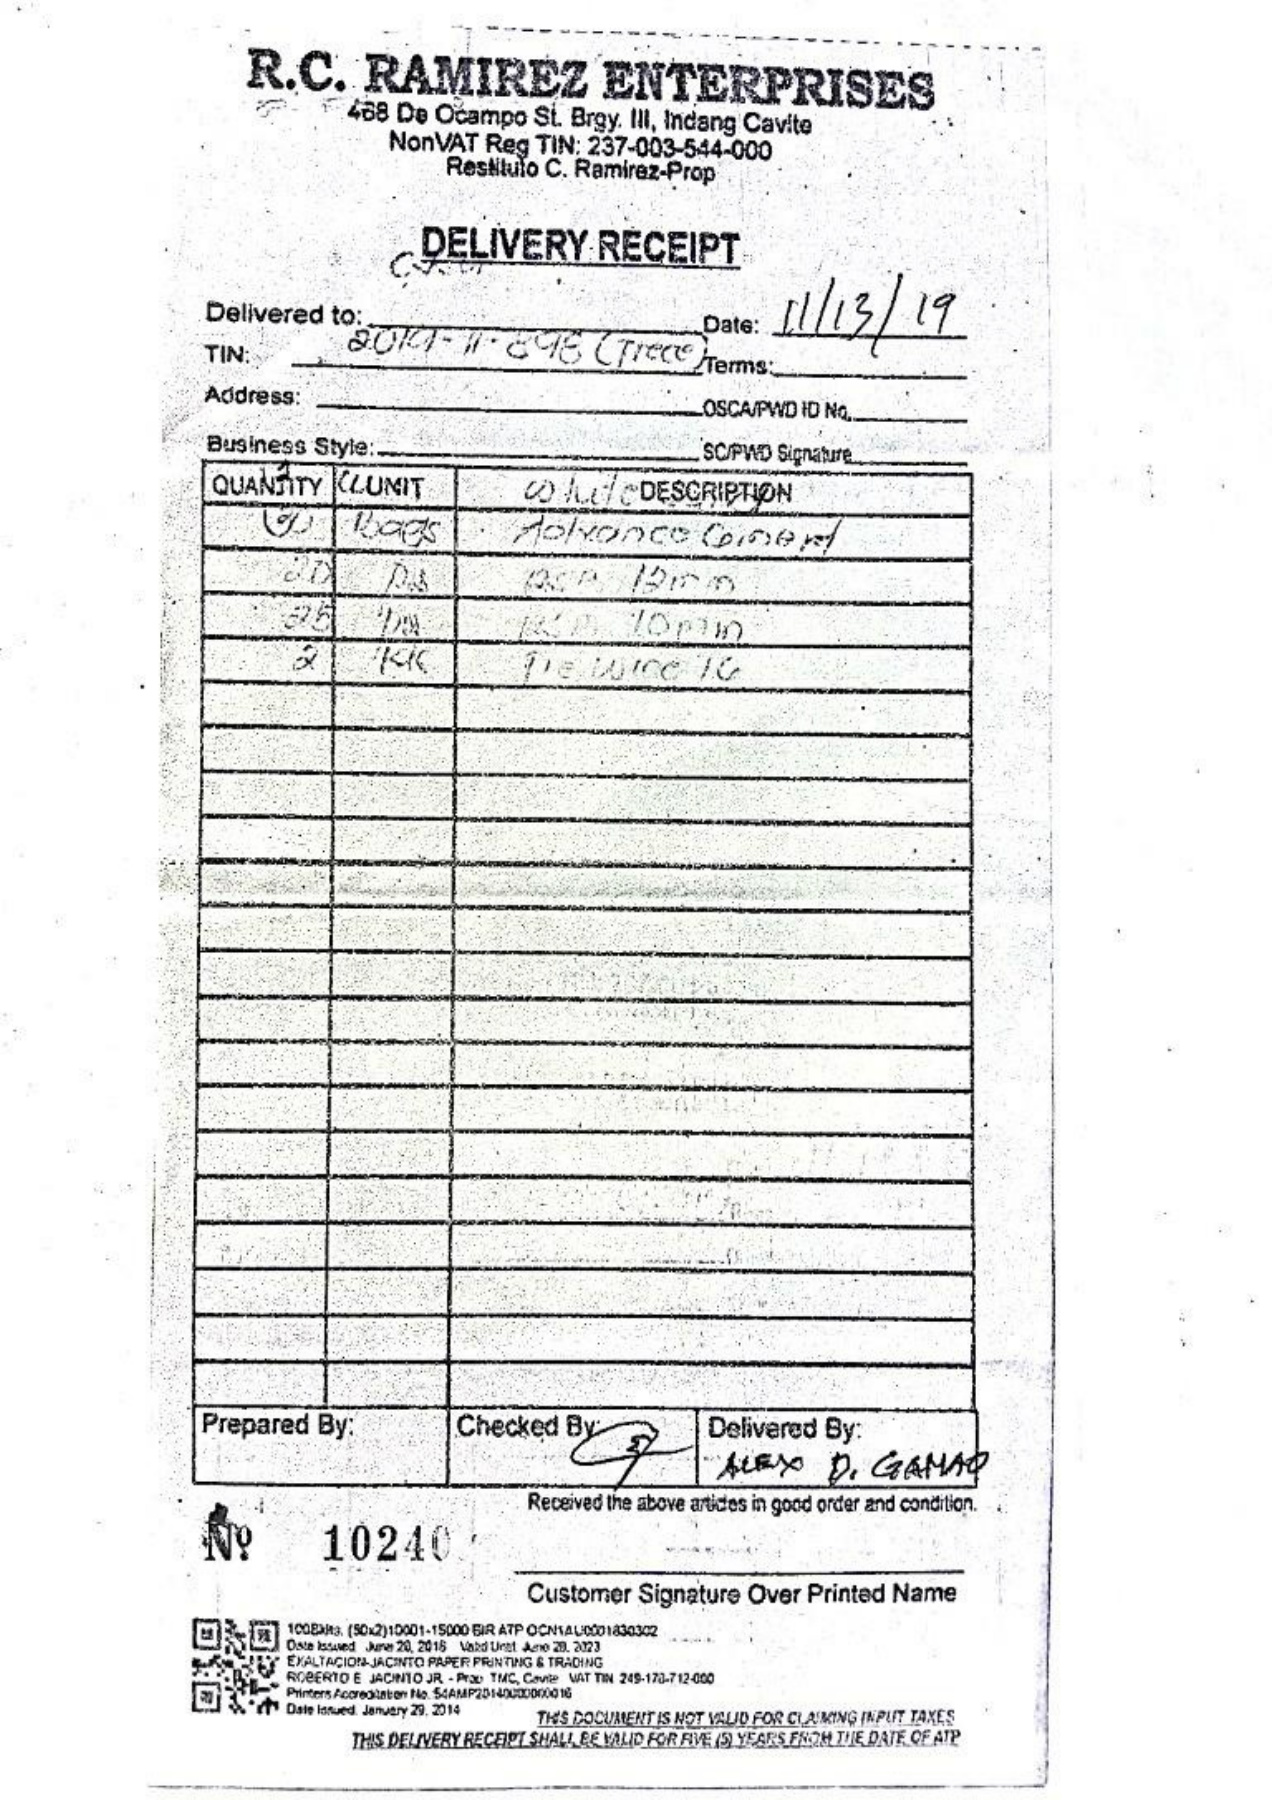 R.C. RAMIREZ ENTERPRISES
468 De Ocampo St. Brgy. III, Indang Cavite
NonVAT Reg TIN: 237-003-544-000
Restituto C. Ramirez-Prop
DELIVERY RECEIPT
Delivered to:
Date: 11/13/19
TIN: 2019-11-898 (Trece)
Terms:
Address:
OSCA/PWD ID No.
Business Style:
SC/PWD Signature
QUANTITY UNIT DESCRIPTION
2 White
Bags Advance Cement
20 12mm
25 10mm
2 Tie wire 16
Prepared By: Checked By: Delivered By:
ALEX D. GAMAO
Received the above articles in good order and condition.
Nº 10240
Customer Signature Over Printed Name
100Bklts. (50x2)10001-15000 BIR ATP OCN1AU0001830302
Date Issued. June 29, 2018 Valid Until June 28, 2023
EXALTACION-JACINTO PAPER PRINTING & TRADING
ROBERTO E. JACINTO JR. - Prop TMC, Cavite VAT TIN 249-178-712-000
Printers Accreditation No. 54AMP20140000000016
Date Issued. January 29, 2014
THIS DOCUMENT IS NOT VALID FOR CLAIMING INPUT TAXES
THIS DELIVERY RECEIPT SHALL BE VALID FOR FIVE (5) YEARS FROM THE DATE OF ATP